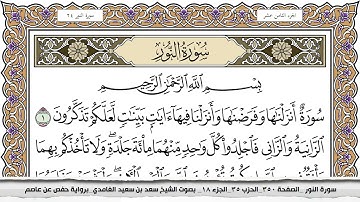 الجزء الثامن عشر
سورة النور ٢٤
سُورَةُ النُّورِ
بِسْمِ اللَّهِ الرَّحْمَٰنِ الرَّحِيمِ
سُورَةٌ أَنزَلْنَٰهَا وَفَرَضْنَٰهَا وَأَنزَلْنَا فِيهَآ ءَايَٰتٍۭ بَيِّنَٰتٍ لَّعَلَّكُمْ تَذَكَّرُونَ ١
ٱلزَّانِيَةُ وَٱلزَّانِى فَٱجْلِدُوا۟ كُلَّ وَٰحِدٍ مِّنْهُمَا مِا۟ئَةَ جَلْدَةٍ وَلَا تَأْخُذْكُم بِهِمَا
سورة النور _ الصفحة ٣٥٠_ الحزب ٣٥_ الجزء ١٨_ بصوت الشيخ سعد بن سعيد الغامدي_ برواية حفص عن عاصم